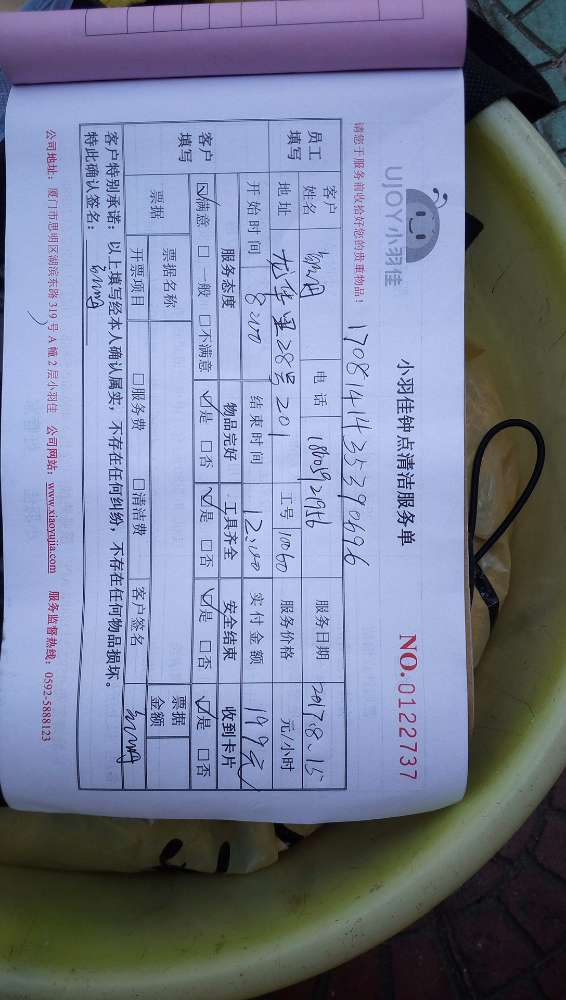 UJOY小羽佳
小羽佳钟点清洁服务单
NO.0122737
请您于服务前收拾好您的贵重物品！
17081414353940696
员工填写 客户姓名 电话 服务日期 2017.8.15
地址 龙华里28号201 工号 10060 服务价格 元/小时
开始时间 8:00 结束时间 12:00 实付金额 199元
客户填写 服务态度 物品完好 工具齐全 安全结束 收到卡片
☑满意 □一般 □不满意 ☑是 □否 ☑是 □否 ☑是 □否 ☑是 □否
票据 票据名称 票据金额
开票项目 □服务费 □清洁费 客户签名
客户特别承诺：以上填写经本人确认属实，不存在任何纠纷，不存在任何物品损坏。
特此确认签名：
公司地址：厦门市思明区湖滨东路319号A幢2层小羽佳 公司网站：www.xiaoyujia.com 服务监督热线：0592-5888123